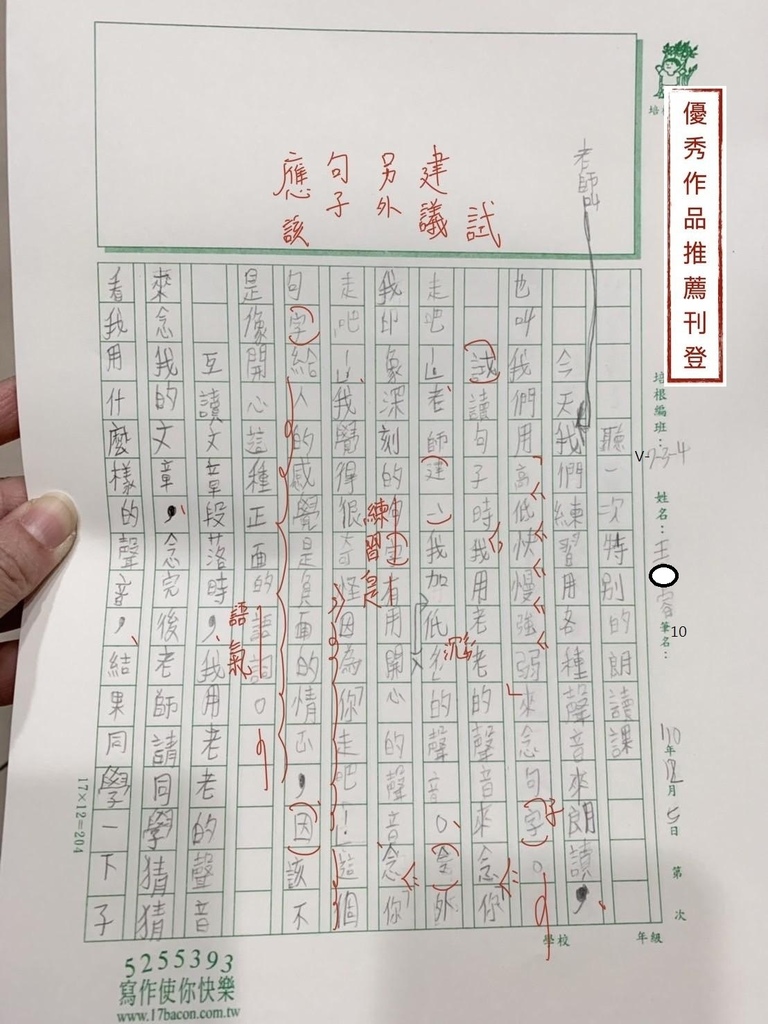 優秀作品推薦刊登
培根編班：V-7-3-4
姓名：王
睿
筆名：
10
110年12月5日
第 次
年級
學校
試
建議
另外
句子
應該
老師叫
聽一次特別的朗讀課
今天我們練習用各種聲音來朗讀，
也叫我們用高低快慢強弱來念句字。
子
試讀句子時我用老老的聲音來念你
走吧！老師建
我加低
的聲音。
外
沉
我印象深刻的
練習是
有用開心的聲音念你
走吧！我覺得很奇怪因為你走吧！這個
句字給人的感覺是負面的情
，因該不
是像開心這種正面的語詞。
語氣
互讀文章段落時，我用老老的聲音
來念我的文章，念完後老師請同學猜猜
看我用什麼樣的聲音，結果同學一下子
17×12=204
5255393
寫作使你快樂
www.17bacon.com.tw